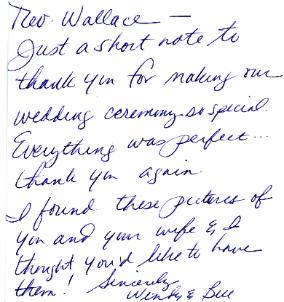 Rev. Wallace —
Just a short note to
thank you for making our
wedding ceremony so special.
Everything was perfect...
thank you again.
I found these pictures of
you and your wife & I
thought you'd like to have
them! Sincerely,
Wendy & Bill